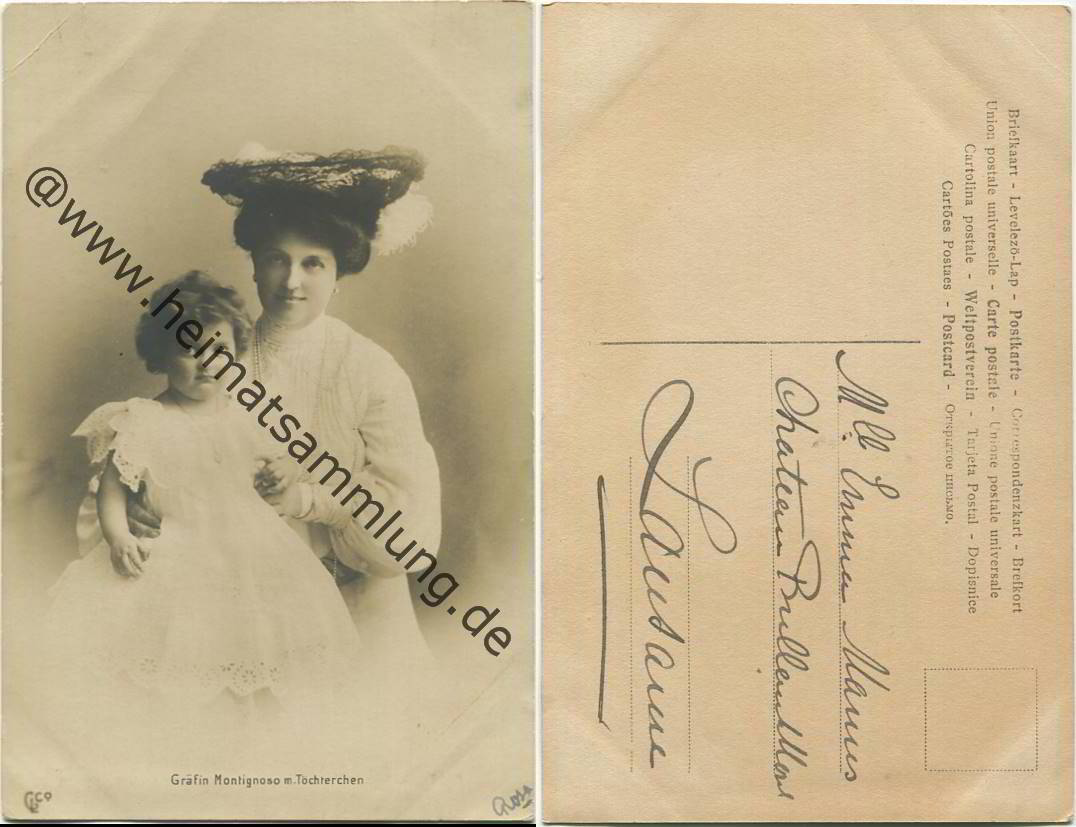 @www.heimatsammlung.de
Gräfin Montignoso m. Töchterchen
Briefkaart - Levelezö-Lap - Postkarte - Correspondenzkart - Brefkort
Union postale universelle - Carte postale - Unione postale universale
Cartolina postale - Weltpostverein - Tarjeta Postal - Dopisnice
Cartões Postaes - Postcard - Открытое письмо.
Mlle Emma
Chateau
Lausanne